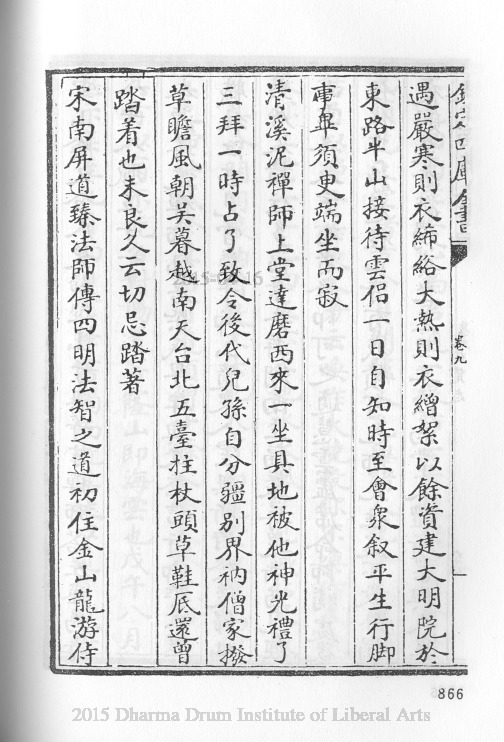 欽定四庫全書
卷九
遇嚴寒則衣絺綌大熱則衣繒絮以餘資建大明院於
東路半山接待雲侣一日自知時至會衆叙平生行脚
事畢須叟端坐而寂
清溪泥禪師上堂達磨西來一坐具地被他神光禮了
三拜一時占了致令後代兒孫自分疆别界衲僧家撥
草瞻風朝吴暮越南天台北五臺拄杖頭草鞋底還曾
踏着也未良久云切忌踏著
宋南屏道臻法師傳四明法智之道初住金山龍游侍
866
2015 Dharma Drum Institute of Liberal Arts